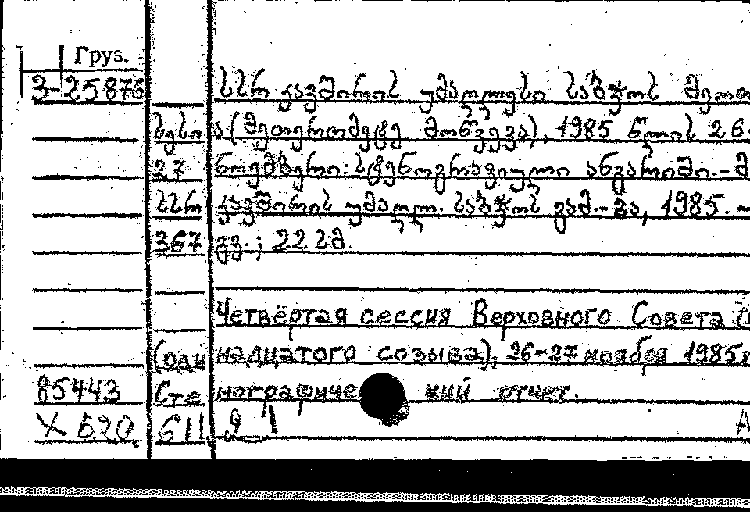 Груз.
3-25876 სსრ კავშირის უმაღლესი საბჭოს
სესია (მეთერთმეტე მოწვევა), 1985 წლის 26
27 ნოემბერი: სტენოგრაფიული ანგარიში.-მ
სსრ კავშირის უმაღლ. საბჭოს გამ.-ვა, 1985.-
367 გვ.; 22 სმ.
Четвёртая сессия Верховного Совета
(одиннадцатого созыва), 26-27 ноября 1985г
85443 Стенографический отчет.
X 620. 611 2